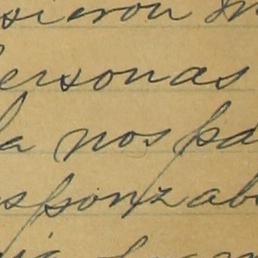 sieron m
ersonas
la nos pa
sponzab